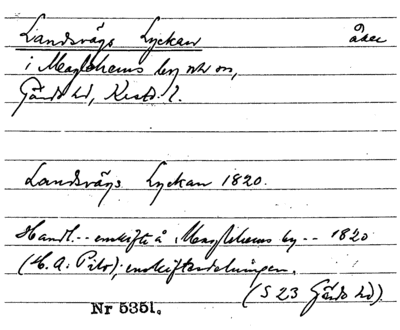 Landsvägs Lyckan åker
i Maglehems by och sn,
Gärds hd, Krist. l.
Landsvägs Lyckan 1820.
Handl. -- enskifte å Maglehems by -- 1820
(H. A. Pihl); enskiftesdelningen.
(S 23 Gärds hd).
Nr 5351.